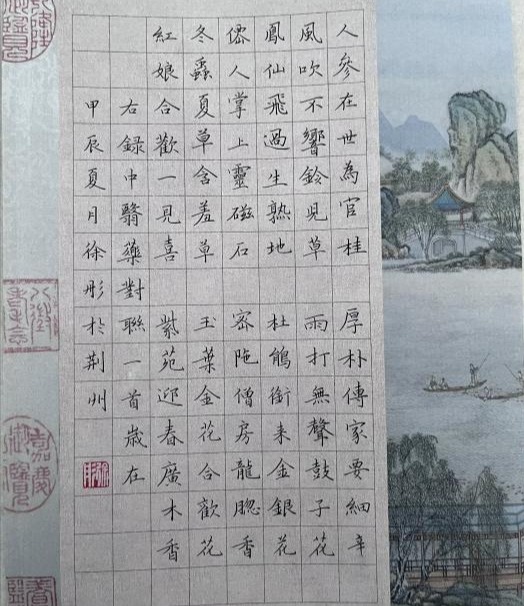 人參在世為官桂 厚朴傳家要細辛
風吹不響鈴児草 雨打無聲鼓子花
鳳仙飛過生熟地 杜鵑銜来金銀花
僊人掌上靈磁石 密陁僧房龍腦香
冬蟲夏草含羞草 玉葉金花合歡花
紅娘合歡一見喜 紫苑迎春廣木香
右録中醫藥對聯一首歲在
甲辰夏月徐彤於荆州